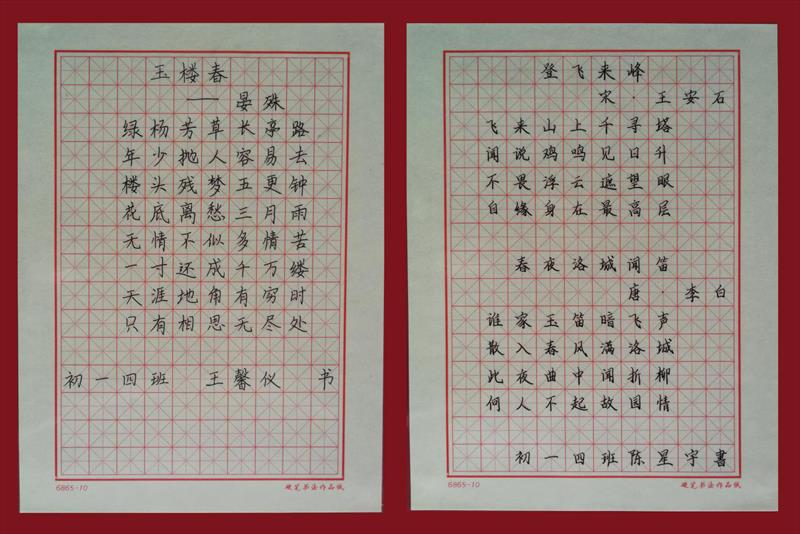 玉楼春
——晏殊
绿杨芳草长亭路
年少抛人容易去
楼头残梦五更钟
花底离愁三月雨
无情不似多情苦
一寸还成千万缕
天涯地角有穷时
只有相思无尽处
初一四班 王馨仪 书
6865-10
硬笔书法作品纸
登飞来峰
宋·王安石
飞来山上千寻塔
闻说鸡鸣见日升
不畏浮云遮望眼
自缘身在最高层
春夜洛城闻笛
唐·李白
谁家玉笛暗飞声
散入春风满洛城
此夜曲中闻折柳
何人不起故园情
初一四班陈星宇書
6865-10
硬笔书法作品纸